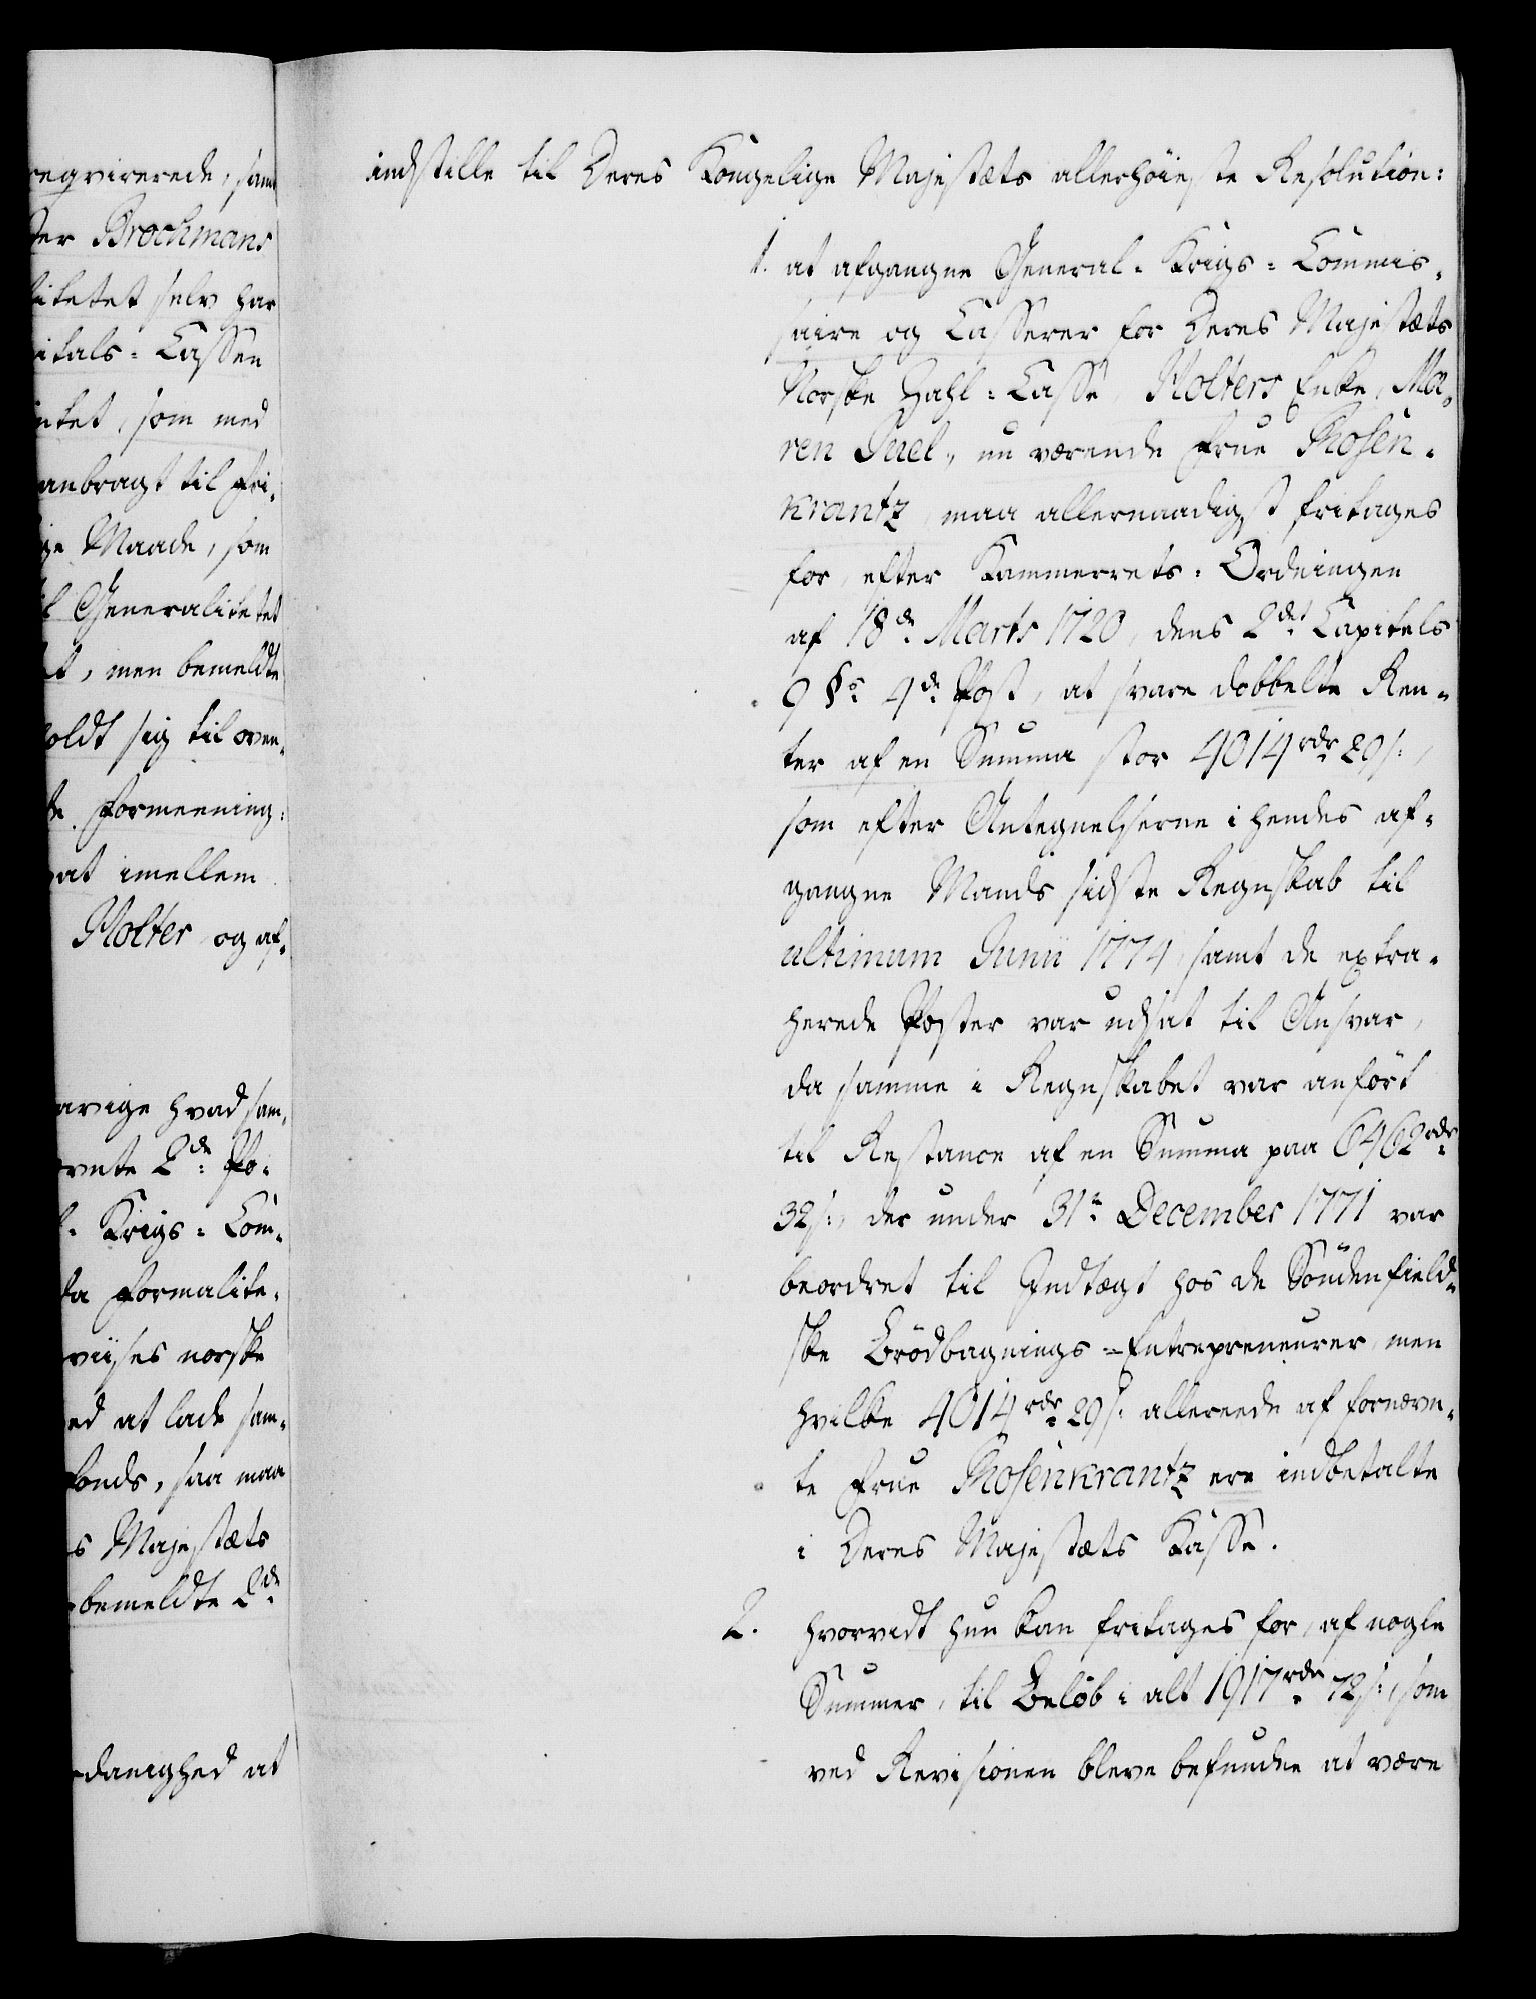 regvirerede, samt
der Brochmans
litetet selv har
itals-Cassen
ntet, som med
anbragt til fri-
ge Maade, som
l Generalitetet
t, men bemeldte
oldt sig til oven-
de formeening:
at imellem
Holter, og af-
arige hvad sam-
ornte 2de Po-
l- Krigs-Com-
da formalite-
viises norske
ed at lade sam-
fonds, saa maa
s Majestæts
bemeldte 2de
danighed at
indstille til Deres Kongelige Majestæts allerhöieste Resolution:
1. at afgangne General-Krigs-Commis-
saire og Casserer for Deres Majestæts
Norske Zahl-Casse, Holters Enke, Ma-
ren Juel, nu værende Frue Rosen-
krantz, maa allernaadigst fritages
for, efter Kammerrets-Ordningen
af 18de Marts 1720, dens 2det Capitels
9 §s 4de Post, at svare dobbelte Ren-
ter af en Summa stor 4014 rdr 29 s:,
som efter Antegnelserne i hendes af-
gangne Mands sidste Regnskab til
ultimum Junii 1774, samt de extra-
herede Poster var udsat til Ansvar,
da samme i Regnskabet var anfört
til Restance af en Summa paa 6462 rdr
32 s:, der under 31te December 1771 var
beordret til Indtægt hos de Söndenfield-
ske Brödbagnings-Entrepreneurer, men
hvilke 4014 rdr 29 s: allereede af fornævn-
te Frue Rosenkrantz ere indbetalte
i Deres Majestæts Kasse.
2. hvorvidt hun kan fritages for, af nogle
Summer, til Belöb i alt 1917 rdr 72 s:, som
ved Revisionen bleve befundne at være